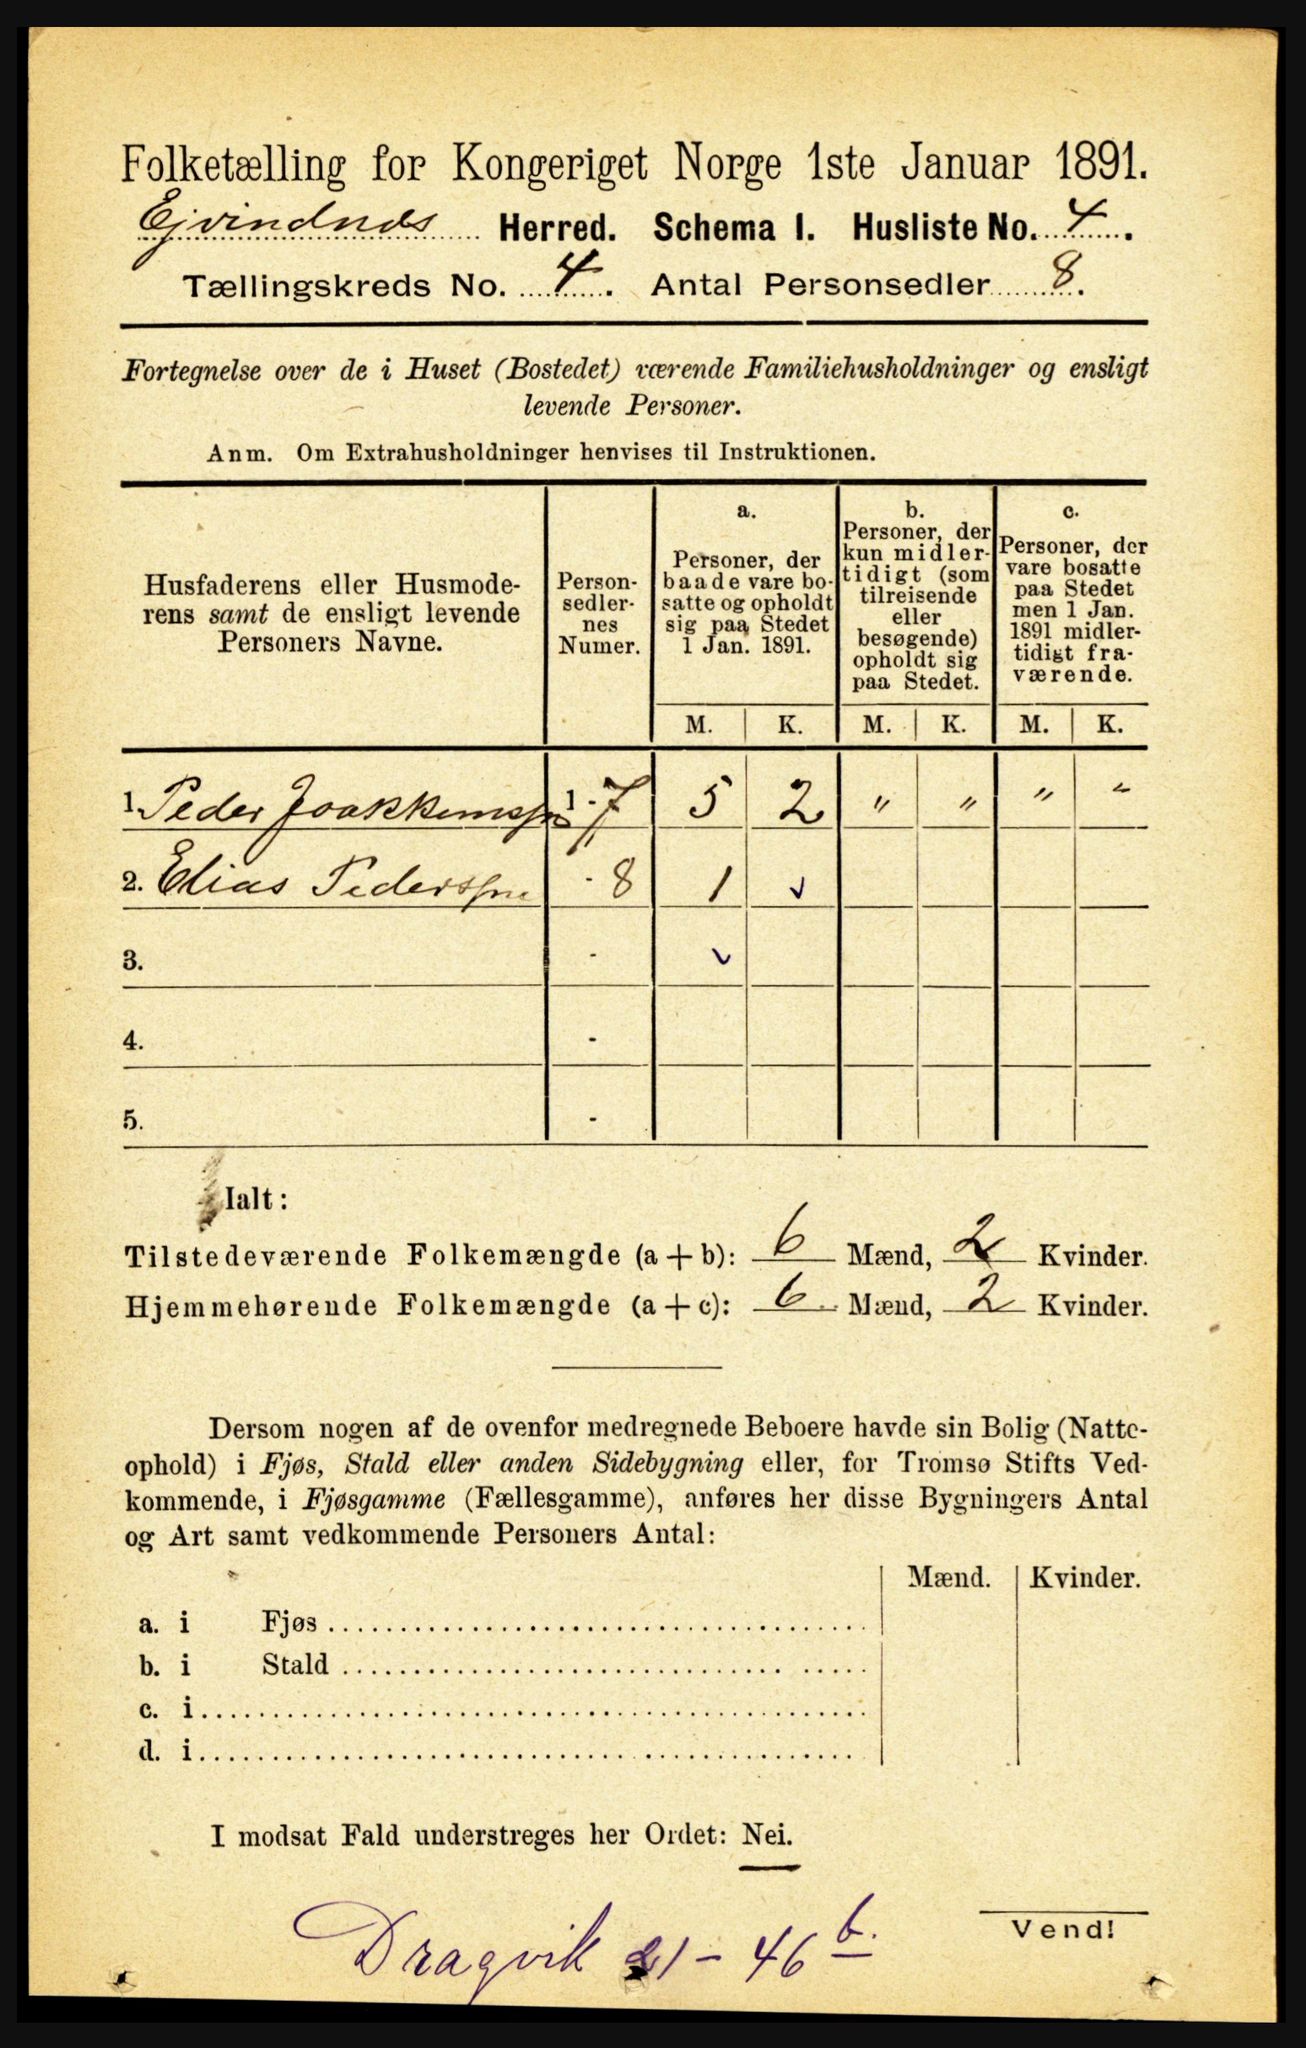 Folketælling for Kongeriget Norge 1ste Januar 1891.
Ejvindnds Herred. Schema I. Husliste No. 4.
Tællingskreds No. 4. Antal Personsedler 8.
Fortegnelse over de i Huset (Bostedet) værende Familiehusholdninger og ensligt
levende Personer.
Anm. Om Extrahusholdninger henvises til Instruktionen.
Husfaderens eller Husmode-
rens samt de ensligt levende
Personers Navne.
Person-
sedler-
nes
Numer.
a.
Personer, der
baade vare bo-
satte og opholdt
sig paa Stedet
1 Jan. 1891.
b.
Personer, der
kun midler-
tidigt (som
tilreisende
eller
besøgende)
opholdt sig
paa Stedet.
c.
Personer, der
vare bosatte
paa Stedet
men 1 Jan.
1891 midler-
tidigt fra-
værende.
M. K. M. K. M. K.
1. Peder Joakkemssøn 1 - 7 5 2 " " " "
2. Elias Pederssøn - 8 1 ✓
3. - ✓
4. -
5. -
Ialt:
Tilstedeværende Folkemængde (a + b): 6 Mænd, 2 Kvinder.
Hjemmehørende Folkemængde (a + c): 6 Mænd, 2 Kvinder.
Dersom nogen af de ovenfor medregnede Beboere havde sin Bolig (Natte-
ophold) i Fjøs, Stald eller anden Sidebygning eller, for Tromsø Stifts Ved-
kommende, i Fjøsgamme (Fællesgamme), anføres her disse Bygningers Antal
og Art samt vedkommende Personers Antal:
Mænd. Kvinder.
a. i Fjøs
b. i Stald
c. i
d. i
I modsat Fald understreges her Ordet: Nei.
Vend!
Dragvik 21 - 46 b.